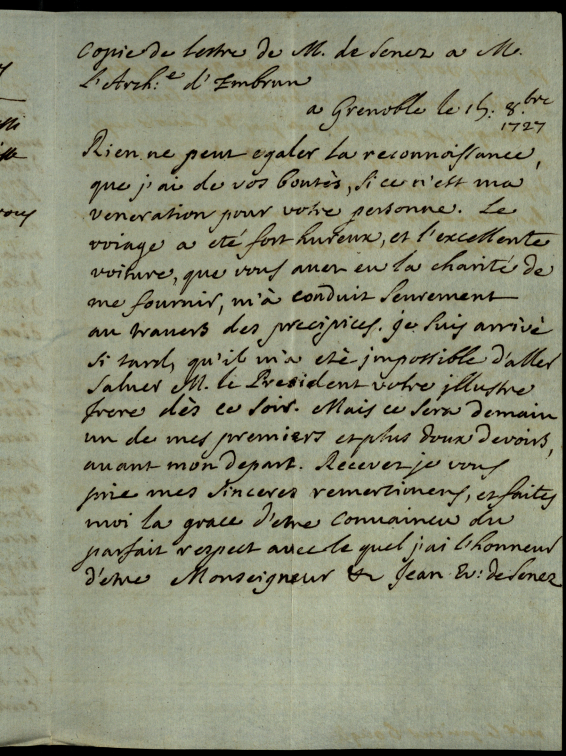 Copie de lettre de M. de Senez a M.
L'Arch.e d'Embrun
a Grenoble le 15. 8.bre
1727
Rien ne peut egaler la reconnoissance,
que j'ai de vos boutès, si ce n'est ma
veneration pour votre personne. Le
voiage a eté fort hureux, et l'excellente
voiture, que vous avez eu la charité de
me fournir, m'à conduit seurement
au travers des precipices. je suis arrivè
si tard, qu'il m'a etè jmpossible d'aller
saluer M. le President votre jllustre
frere dès ce soir. Mais ce sera demain
un de mes premiers et plus doux devoirs,
avant mon depart. Recevez je vous
prie mes sinceres remercimens, et faites
moi la grace d'etre convaincu du
parfait respect avec le quel j'ai l'honneur
d'etre Monseigneur &c Jean Ev: de Senez